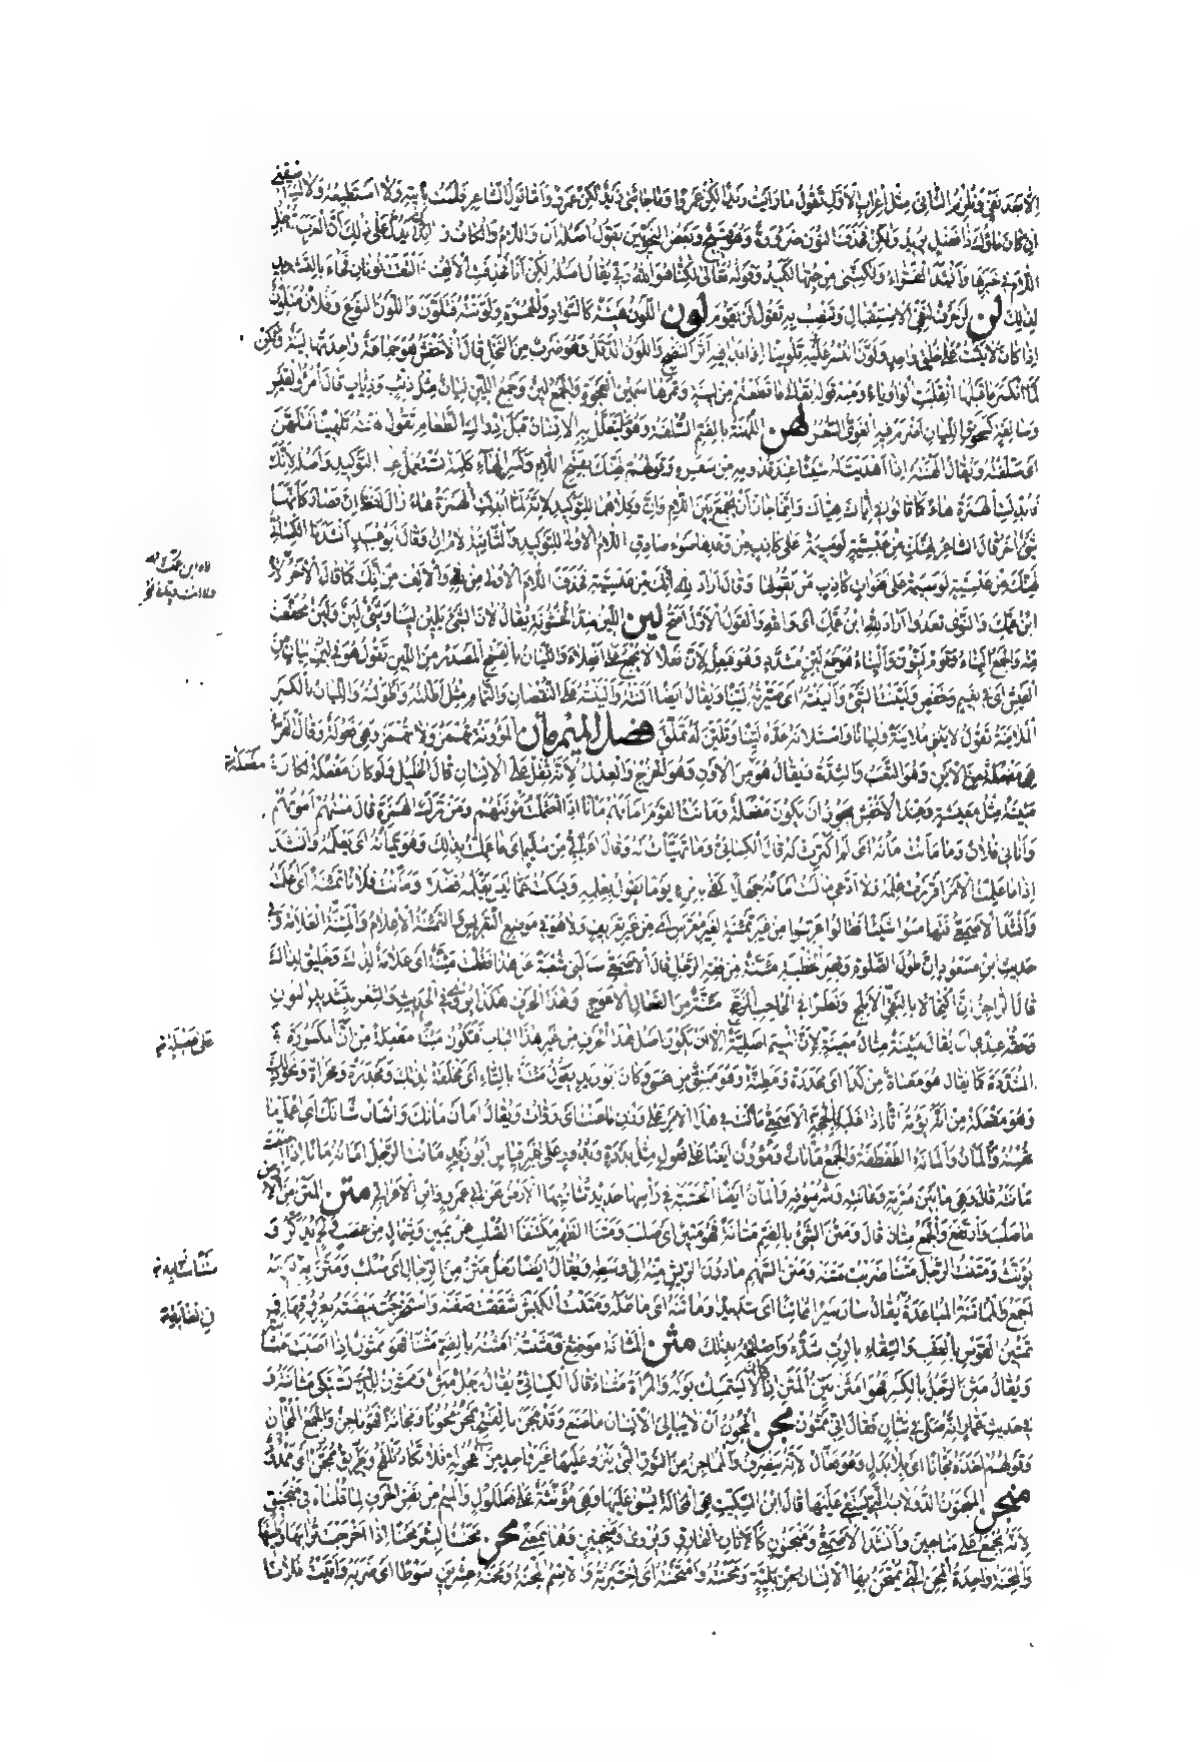 الا بعد نفي وتلزم الثاني مثل اعراب الاول تقول ما رأيت زيدا لكن عمروا وما جاءني زيد لكن عمرو واما قول الشاعر فلست بآتيه ولا استطيعه ولاك اسقني
ان كان ماؤك ذا فضل يريد ولكن فحذف النون ضرورة وهو قبيح وبعض النحويين يقول اصله ان واللام والكاف زائد يدل على ذلك ان العرب تدخل
اللام في خبرها وانشد الفراء ولكنني من حبها لكميد وقوله تعالى لكنا هو الله ربي يقال اصله لكن انا فحذفت الالف فالتقت نونان فجاء بالتشديد
لذلك لن لن حرف لنفي الاستقبال وتنصب به تقول لن يقوم لون اللون هيئة كالسواد والحمرة ولونته فتلون واللون النوع وفلان متلون
اذا كان لا يثبت على خلق واحد ولون البسر تلوينا اذا بدا فيه اثر النضج واللون الدقل وهو ضرب من النخل قال الاخفش هو جماعة واحدتها لينة ولكن
لما انكسر ما قبلها انقلبت الواو ياء ومنه قوله تعالى ما قطعتم من لينة وتمرها سمين العجوة والجمع لين وجمع اللين ليان مثل ذئب وذياب قال امرؤ القيس
وسالفة كسحوق الليان اضرم فيه الغوي السعر لهن اللهنة بالضم السلفة وهو ما يتعلل به الانسان قبل ادراك الطعام تقول لهنته تلهينا فتلهن
اي سلفته ويقال الهنته اذا اهديت له شيئا عند قدومه من سفره وقولهم لهنك بفتح اللام وكسر الهاء كلمة تستعمل عند التوكيد واصله لانك
فابدلت الهمزة هاء كما قالوا في اياك هياك وانما جاز ان يجمع بين اللام وان وكلاهما للتوكيد لانه لما ابدلت الهمزة هاء زال لفظ ان فصار كانها
شيء اخر قال الشاعر لهنك من عبسية لوسيمة على كاذب من وعدها ضوء صادق اللام الاولى للتوكيد والثانية لام ان وقال ابو عبيد انشدنا الكسائي
لهنك من عبسية لوسيمة على هنوات كاذب من يقولها وقال اراد لله انك من عبسية فحذف اللام الاولى من لله والالف من انك كما قال الاخر لاه
ابن عمك والنوى تعدو اراد لله ابن عمك اي والله والقول الاول اصح لين اللين ضد الخشونة يقال لان الشيء يلين لينا وشيء لين ولين مخفف
منه والجمع اليناء وقوم لينون واليناء هو جمع لين مشدد وهو فيعل لان فعلا لا يجمع على افعلاء والليان بالفتح المصدر من اللين تقول هو في ليان من
العيش اي في نعيم وخفض ولينت الشيء والينته اي صيرته لينا ويقال ايضا النته والينته على النقصان والتمام مثل اطلته واطولته والليان بالكسر
الملاينة تقول لاينني ملاينة وليانا واستلانه عده لينا وتلين له تملق فصل الميم مان المؤونة تهمز ولا تهمز وهي فعولة وقال الفراء
هي مفعلة من الاين وهو التعب والشدة ويقال هو من الاون وهو الخرج والعدل لانه ثقل على الانسان قال الخليل ولو كان مفعلة لكان
مئينة مثل معيشة وعند الاخفش يجوز ان تكون مفعلة ومانت القوم امأنهم مأنا اذا احتملت مؤونتهم ومن ترك الهمزة قال منتهم امونهم
واتاني فلان وما مانت مأنه اي لم اكترث له قال الكسائي وما تهيات له وقال اعرابي من سليم اي ما علمت بذلك وهو يمأنه اي يعلمه وانشد
اذا ما علمت الامر اقررت علمه ولا ادعي ما لست امأنه جهلا كفى بامرئ يوما يقول بعلمه ويسكت عما ليس يعلمه فضلا ومأنت فلانا تمئنة اي اعلمته
وانشد الاصمعي فتهامسوا شيئا فقالوا عرسوا من غير تمئنة لغير معرس اي من غير تعريف ولا هو في موضع التعريس والتمئنة الاعلام والمئنة العلامة وفي
حديث ابن مسعود ان طول الصلوة وقصر الخطبة مئنة من فقه الرجل قال الاصمعي سالني شعبة عن هذا فقلت مئنة اي علامة لذاك وخليق لذاك
قال الراجز ان اكتحالا بالنقي الابلج ونظرا في الحاجب المزجج مئنة من الفعال الاعوج وهذا الحرف هكذا يروى في الحديث والشعر بتشديد النون
وحقه عندي ان يقال مئينة مثال معينة لان الميم اصلية الا ان يكون اصل هذا الحرف من غير هذا الباب فتكون مئنة مفعلة من ان المكسورة
المشددة كما يقال هو معساة من كذا اي مجدرة ومظنة وهو مبني من عسى وكان ابو زيد يقول مئتة بالتاء اي مخلقة لذلك ومجدرة ومحراة ونحو ذلك
وهو مفعلة من اته يؤته اتا اذا غلبه بالحجة الاصمعي ماأنت في هذا الامر على وزن ماعنت اي روأت ويقال امأن مأنك واشأن شأنك اي اعمل ما
تحسنه والمأن والمأنة الطفطفة والجمع مأنات ومؤون ايضا على فعول مثل بدرة وبدور على غير قياس ابو زيد مأنت الرجل امأنه مأنا اذا اصبت
مأنته قال وهي ما بين سرته وعانته وشرسوفه والمأن ايضا الخشبة في رأسها حديدة تثار بها الارض عن ابي عمرو وابن الاعرابي متن المتن من الارض
ما صلب وارتفع والجمع متان قال ومتن الشيء بالضم متانة فهو متين اي صلب ومتنا الظهر مكتنفا الصلب عن يمين وشمال من عصب ولحم يذكر و
يؤنث ومتنت الرجل متنا ضربت متنه ومتن السهم ما دون الريش منه الى وسطه ويقال ايضا رجل متن من الرجال اي صلب ومتن به
اجمع والمماتنة المباعدة يقال سار سيرا مماتنا اي شديدا وماتنه اي ماطله ومتنت الكبش شققت صفنه واستخرجت بيضته بعروقها
تمتين القوس بالعقب والسقاء بالرب شده واصلاحه بذلك مثن المثانة موضع ومثنته امثنه بالضم مثنا فهو ممثون اذا اصبت مثانته
ويقال مثن الرجل بالكسر فهو امثن بين المثن اذا كان لا يستمسك بوله والمراة مثناء قال الكسائي يقال رجل مثن وممثون للذي يشتكي مثانته و
في حديث عمار انه صلى في تبان فقال اني ممثون مجن المجون ان لا يبالي الانسان ما صنع وقد مجن بالفتح يمجن مجونا ومجانة فهو ماجن والجمع المجان
وقولهم اخذه مجانا اي بلا بدل وهو فعال لانه ينصرف والمماجن من النوق التي ينزو عليها غير واحد من الفحولة فلا تكاد تلقح وطريق ممجن اي ممدود
منجن المنجنون الدولاب التي يستقى عليها قال ابن السكيت هي المحالة يسنى عليها وهي مؤنثة على فعللول والميم من نفس الحرف لما قلناه في منجنيق
لانه يجمع على مناجين وانشد الاصمعي ومنجنون كالاتان الفارق ويروى ومنجنين وهما بمعنى محن محنت البئر محنا اذا اخرجت ترابها وطينها
والمحنة واحدة المحن التي يمتحن بها الانسان من بلية ومحنته وامتحنته اي اختبرته والاسم المحنة ومحنه عشرين سوطا اي ضربه واتيت فلانا